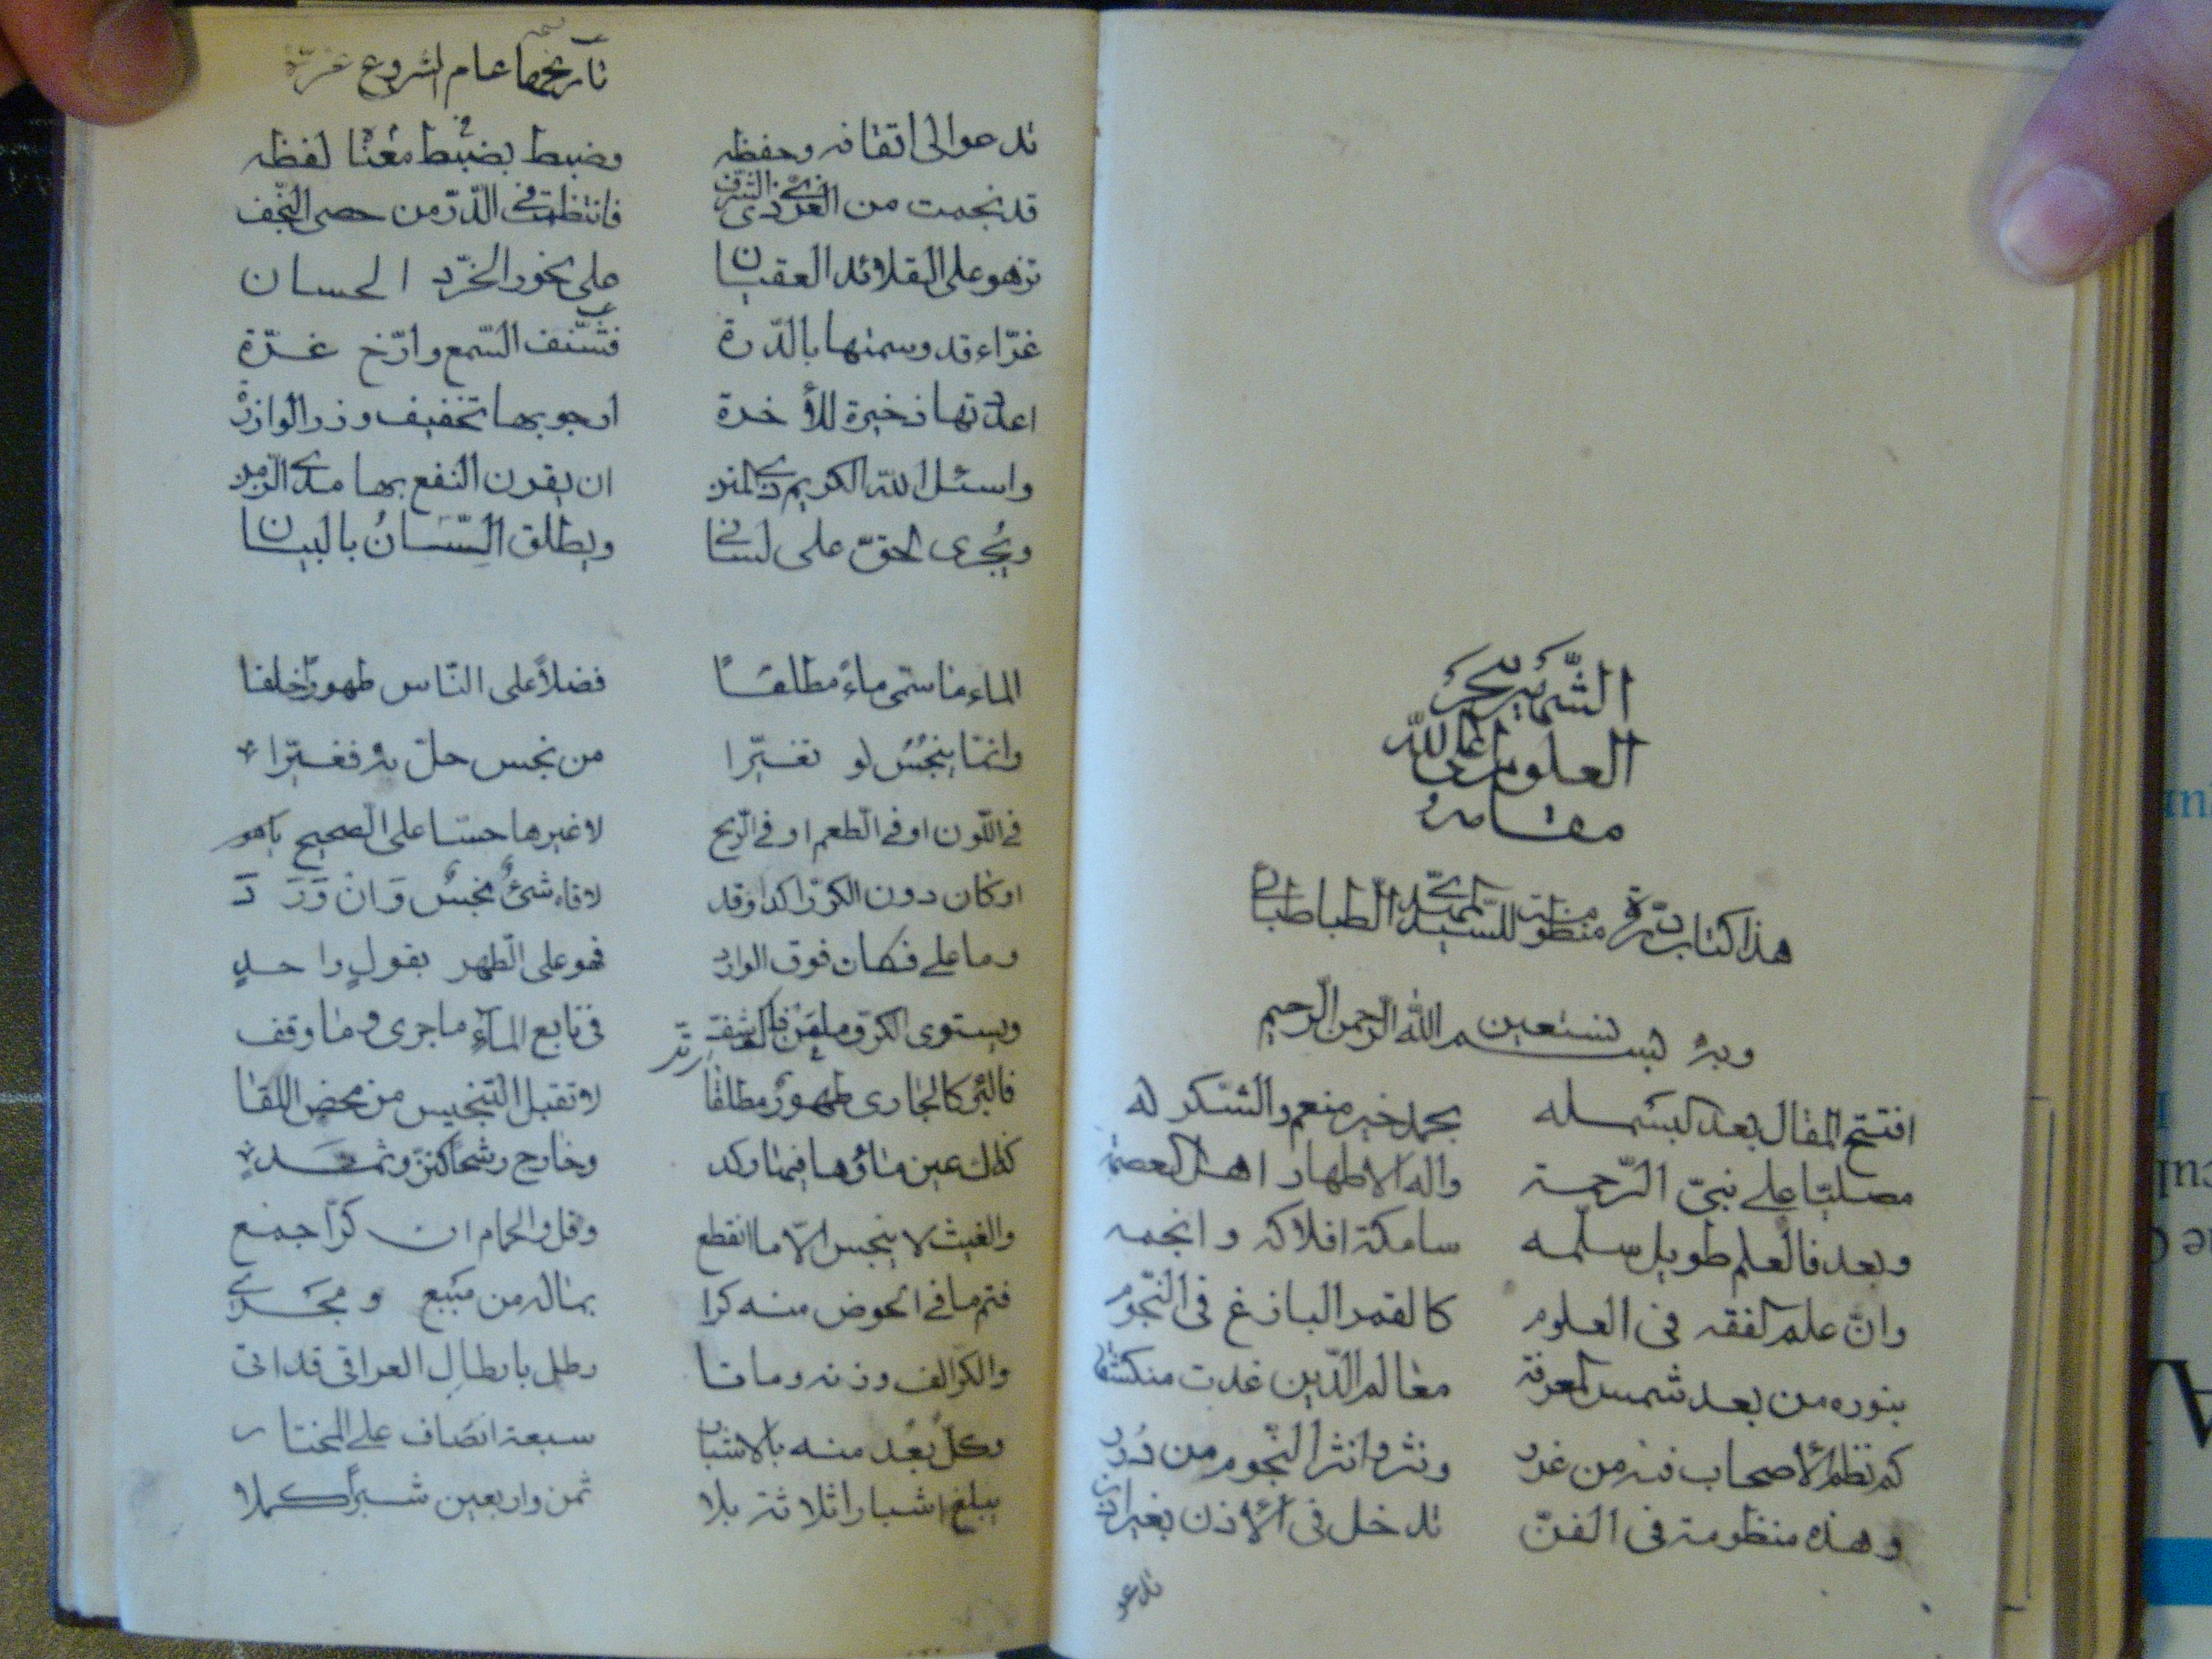 الشهير ببحر
العلوم اعلى الله
مقامه
هذا كتاب درّة منظومة للسّيد الطباطبائي
وبه نستعين بسم الله الرّحمن الرّحيم
افتتح المقال بعد البسمله بحمد خير منعم والشكر له
مصليّا على نبيّ الرّحمة واله الاطهار اهل العصمة
وبعد فالعلم طويل سلّمه سامكة افلاكه وانجمه
وانّ علم الفقه فى العلوم كالقمر البازغ فى النّجوم
بنوره من بعد شمس المعرفة معالم الدّين غدت منكشفة
كم نظم الأصحاب فيه من غرر ونثروا نثر النّجوم من دُرر
وهذه منظومة فى الفنّ تدخل فى الأذن بغير اذن
تدعو
تاريخها عام الشروع غرّة
تدعوا الى اتقانه وحفظه وضبط بضبط معنا لفظه
قد نجمت من الغري ذى الشرف فانتظمت فى الدّرّ من حصى النّجف
تزهو على القلائد العقيان على نحور الخرّد الحسان
غرّاء قد وسمتها بالدّرة فشنّف السّمع وارّخ غرّة
اعددتها ذخيرة للأخرة ارجو بها تخفيف وزر الوازرة
واسئل الله الكريم ذى المنن ان يقرن النفع بها مدى الزّمن
ويُجرى الحقّ على لسانى ويطلق اللّسانُ بالبيان
الماء ما سمّى ماءً مطلقًا فضلاً على النّاس طهوراً خلقا
وانّما ينجُسُ لو تغيّرا من نجس حلّ به فغيّرا
فى اللّون او فى الطعم او فى الرّيح لا غيرها حسّا على الصحيح
او كان دون الكرّ راكدا وقد لاقاه شئ نجسٌ وَانْ وَرَدَ
وما على فكان فوق الوارد فهو على الطّهر بقولٍ واحدٍ
ويستوى الكرّ فى تابع المآءِ ما جرى وما وقف
فالبئر كالجارى طهورٌ مطلقا لا تقبل التّنجيس من محض اللقا
كذلك عين ماؤها فيما ركد وخارج رشحاً كنزّ وثمد
والغيث لا ينجس الاّ ما انقطع وقل والحمام ان كرّا جمع
فتم ما فى الحوض منه كرا بماله من منبع ومجرى
والكرّ الف وزنه ومائتا رطل بارطال العراقى قد اتى
وكلّ بُعد منه بالاشبار سبعة انصاف على المختار
يبلغ اشبارا ثلاثة بلا ثمن واربعين شبراً كملا